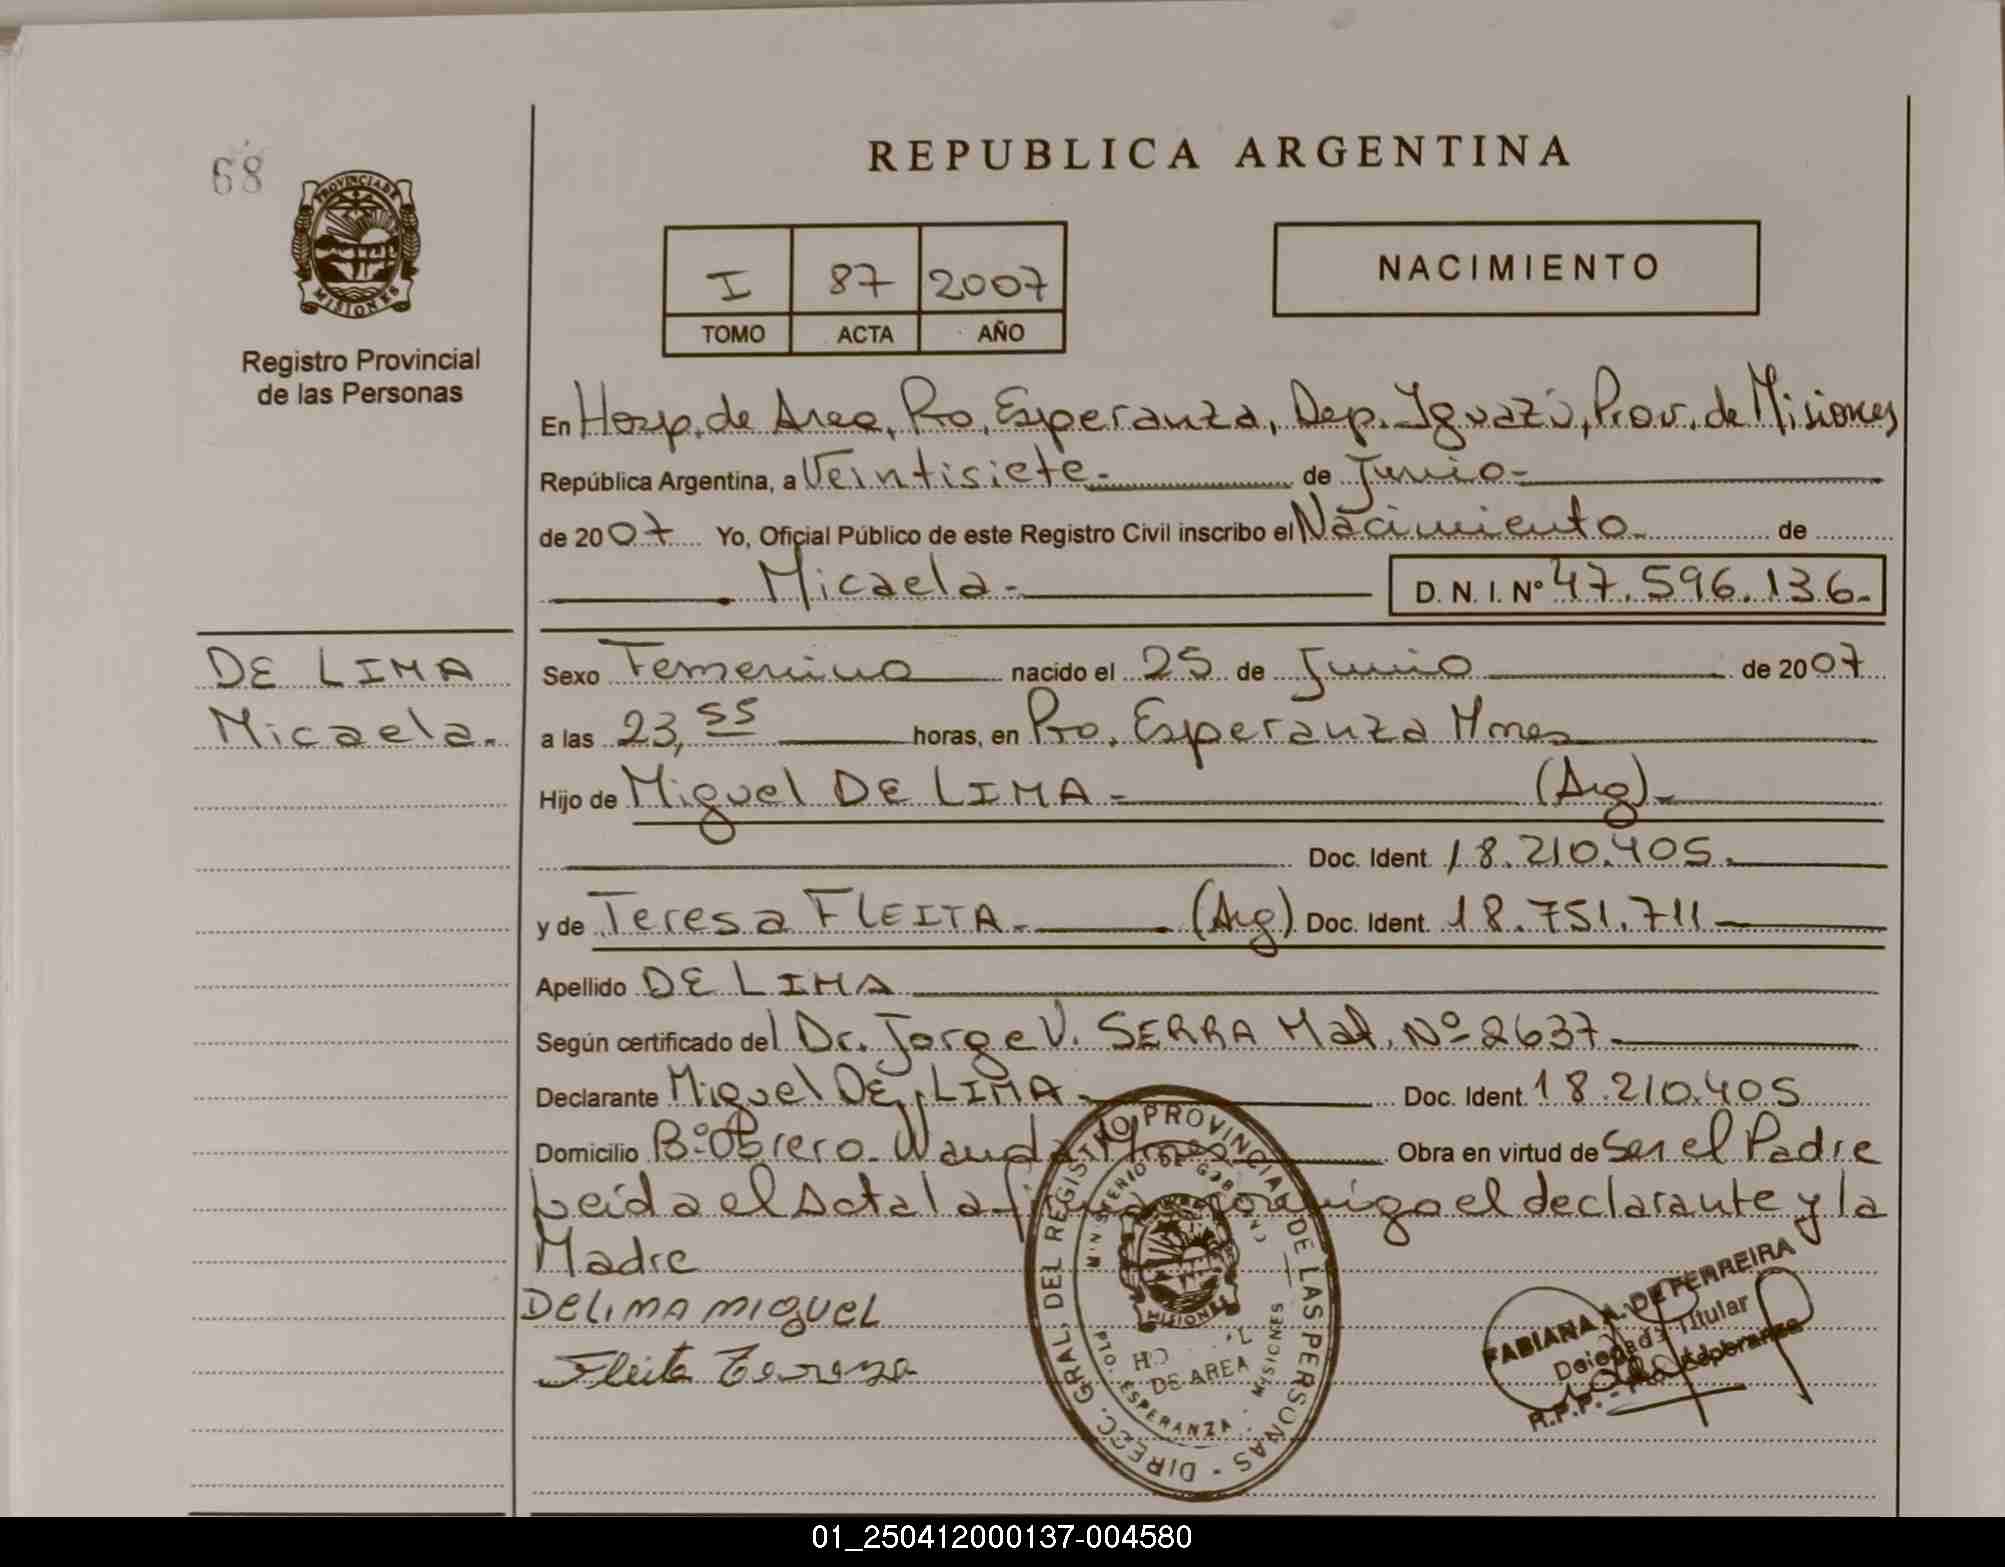 68
PROVINCIA DE
MISIONES
Registro Provincial
de las Personas
REPUBLICA ARGENTINA
I 87 2007
TOMO ACTA AÑO
NACIMIENTO
En Hosp. de Area, Pto. Esperanza, Dep. Iguazú, Prov. de Misiones
República Argentina, a Veintisiete.- de Junio-
de 2007 Yo, Oficial Público de este Registro Civil inscribo el Nacimiento de
Micaela- D. N. I. Nº 47.596.136.-
DE LIMA
Micaela.
Sexo Femenino nacido el 25 de Junio de 2007
a las 23,55 horas, en Pto. Esperanza Mnes
Hijo de Miguel DE LIMA - (Arg).-
Doc. Ident. 18.210.405.
y de Teresa FLEITA. (Arg) Doc. Ident. 18.751.711
Apellido DE LIMA
Según certificado del Dr. Jorge V. SERRA Mat. Nº 2637.
Declarante Miguel DE LIMA. Doc. Ident. 18.210.405
Domicilio Bº Obrero. Wanda Mnes Obra en virtud de Ser el Padre
Leída el Acta la firma conmigo el declarante y la
Madre
DELIMA MIGUEL
Fleita Tereza
DIRECC. GRAL. DEL REGISTRO PROVINCIAL DE LAS PERSONAS -
MINISTERIO DE GOBIERNO
MISIONES
DE AREA
PTO. ESPERANZA - MISIONES
FABIANA A. DE FERREIRA
Delegada Titular
R.P.P. - Pto. Esperanza
01_250412000137-004580